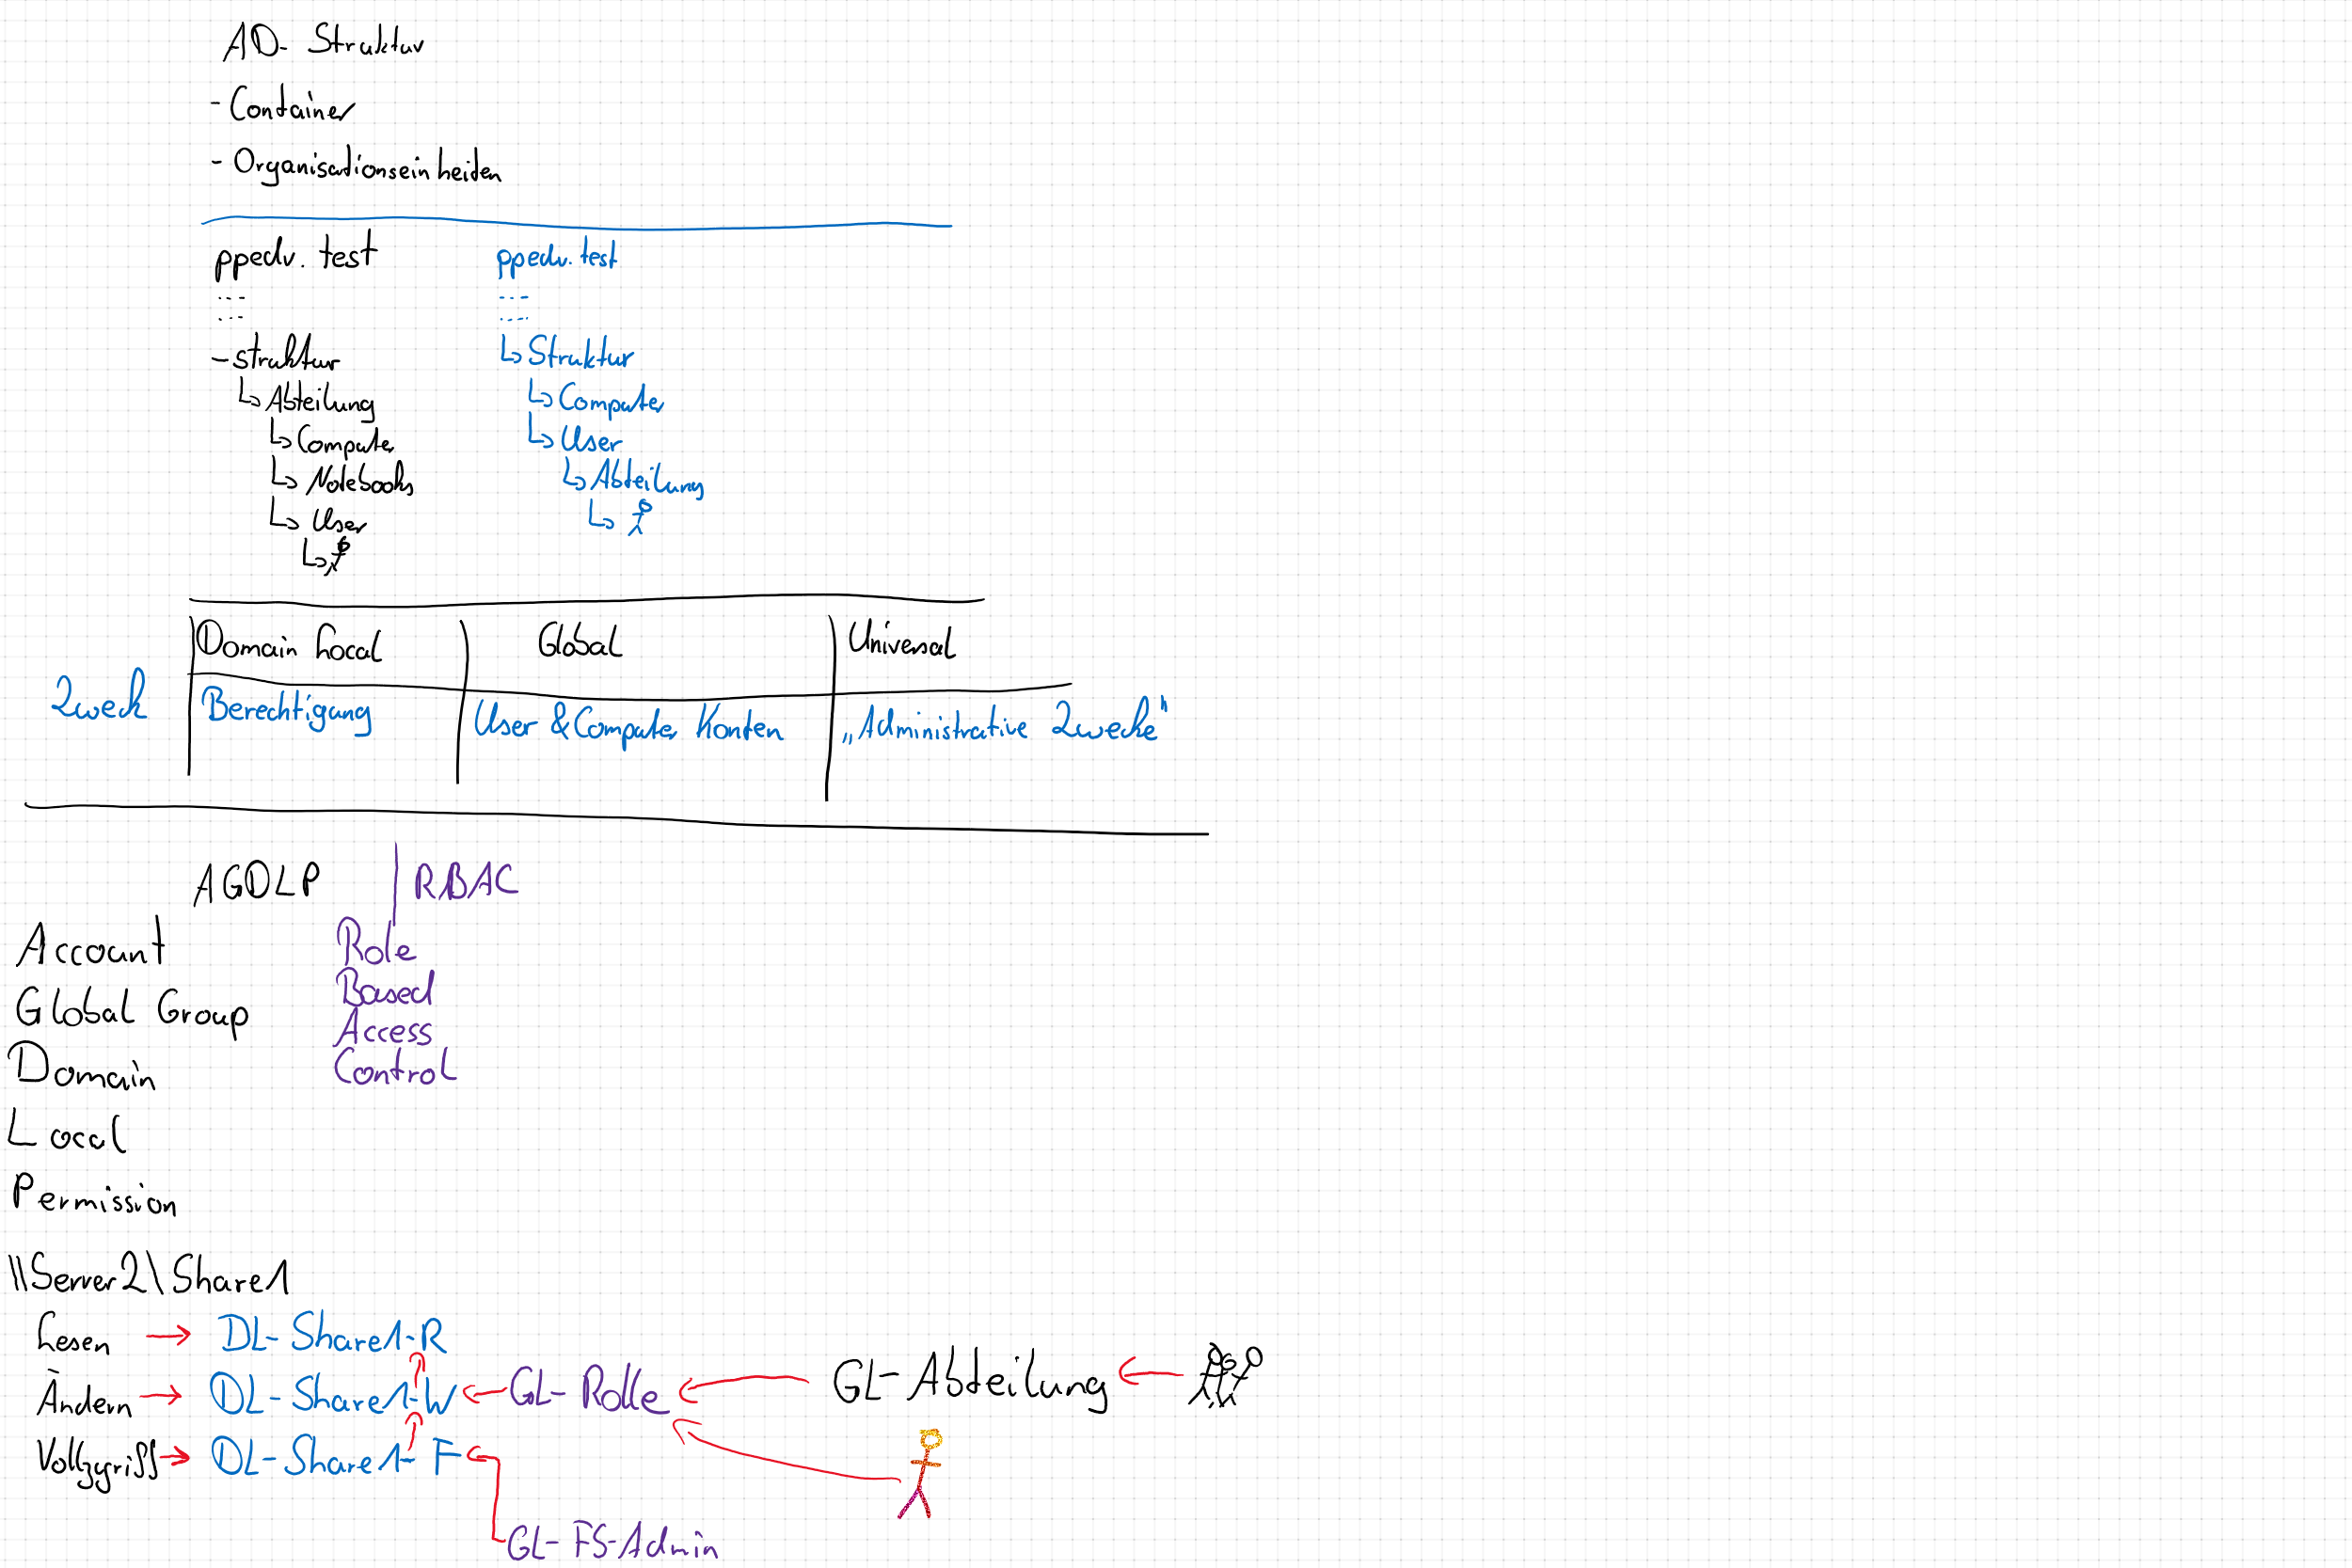 AD- Struktur
- Container
- Organisationseinheiten
ppedv.test
...
...
- Struktur
↳ Abteilung
↳ Computer
↳ Notebooks
↳ User
↳
ppedv.test
...
...
↳ Struktur
↳ Computer
↳ User
↳ Abteilung
↳
Domain Local Global Universal
Zweck Berechtigung User & Computer Konten „Administrative Zwecke"
AGDLP | RBAC
Account
Global Group
Domain
Local
Permission
Role
Based
Access
Control
\\Server2\Share1
Lesen → DL-Share1-R
Ändern → DL-Share1-W ← GL-Rolle ← GL-Abteilung ←
Vollzgriff → DL-Share1-F ←
GL-FS-Admin